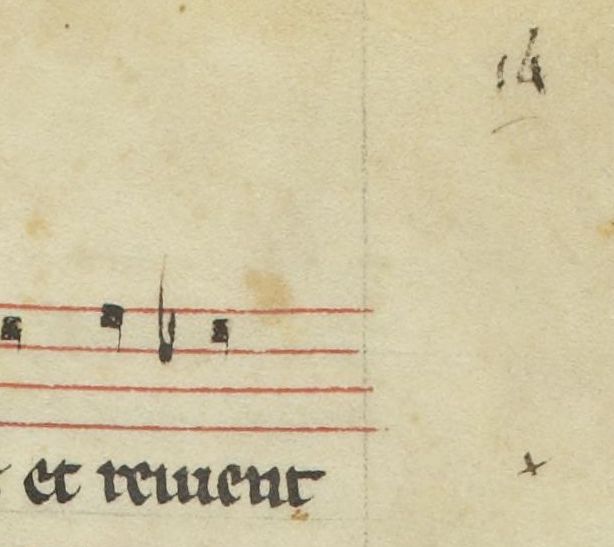 et reuient